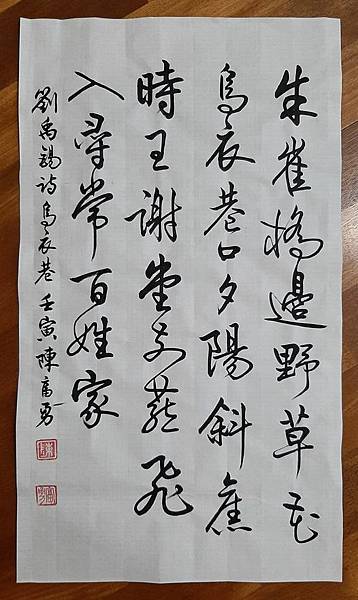 朱雀橋邊野草花
烏衣巷口夕陽斜舊
時王謝堂前燕飛
入尋常百姓家
劉禹錫詩烏衣巷 壬寅陳富勇